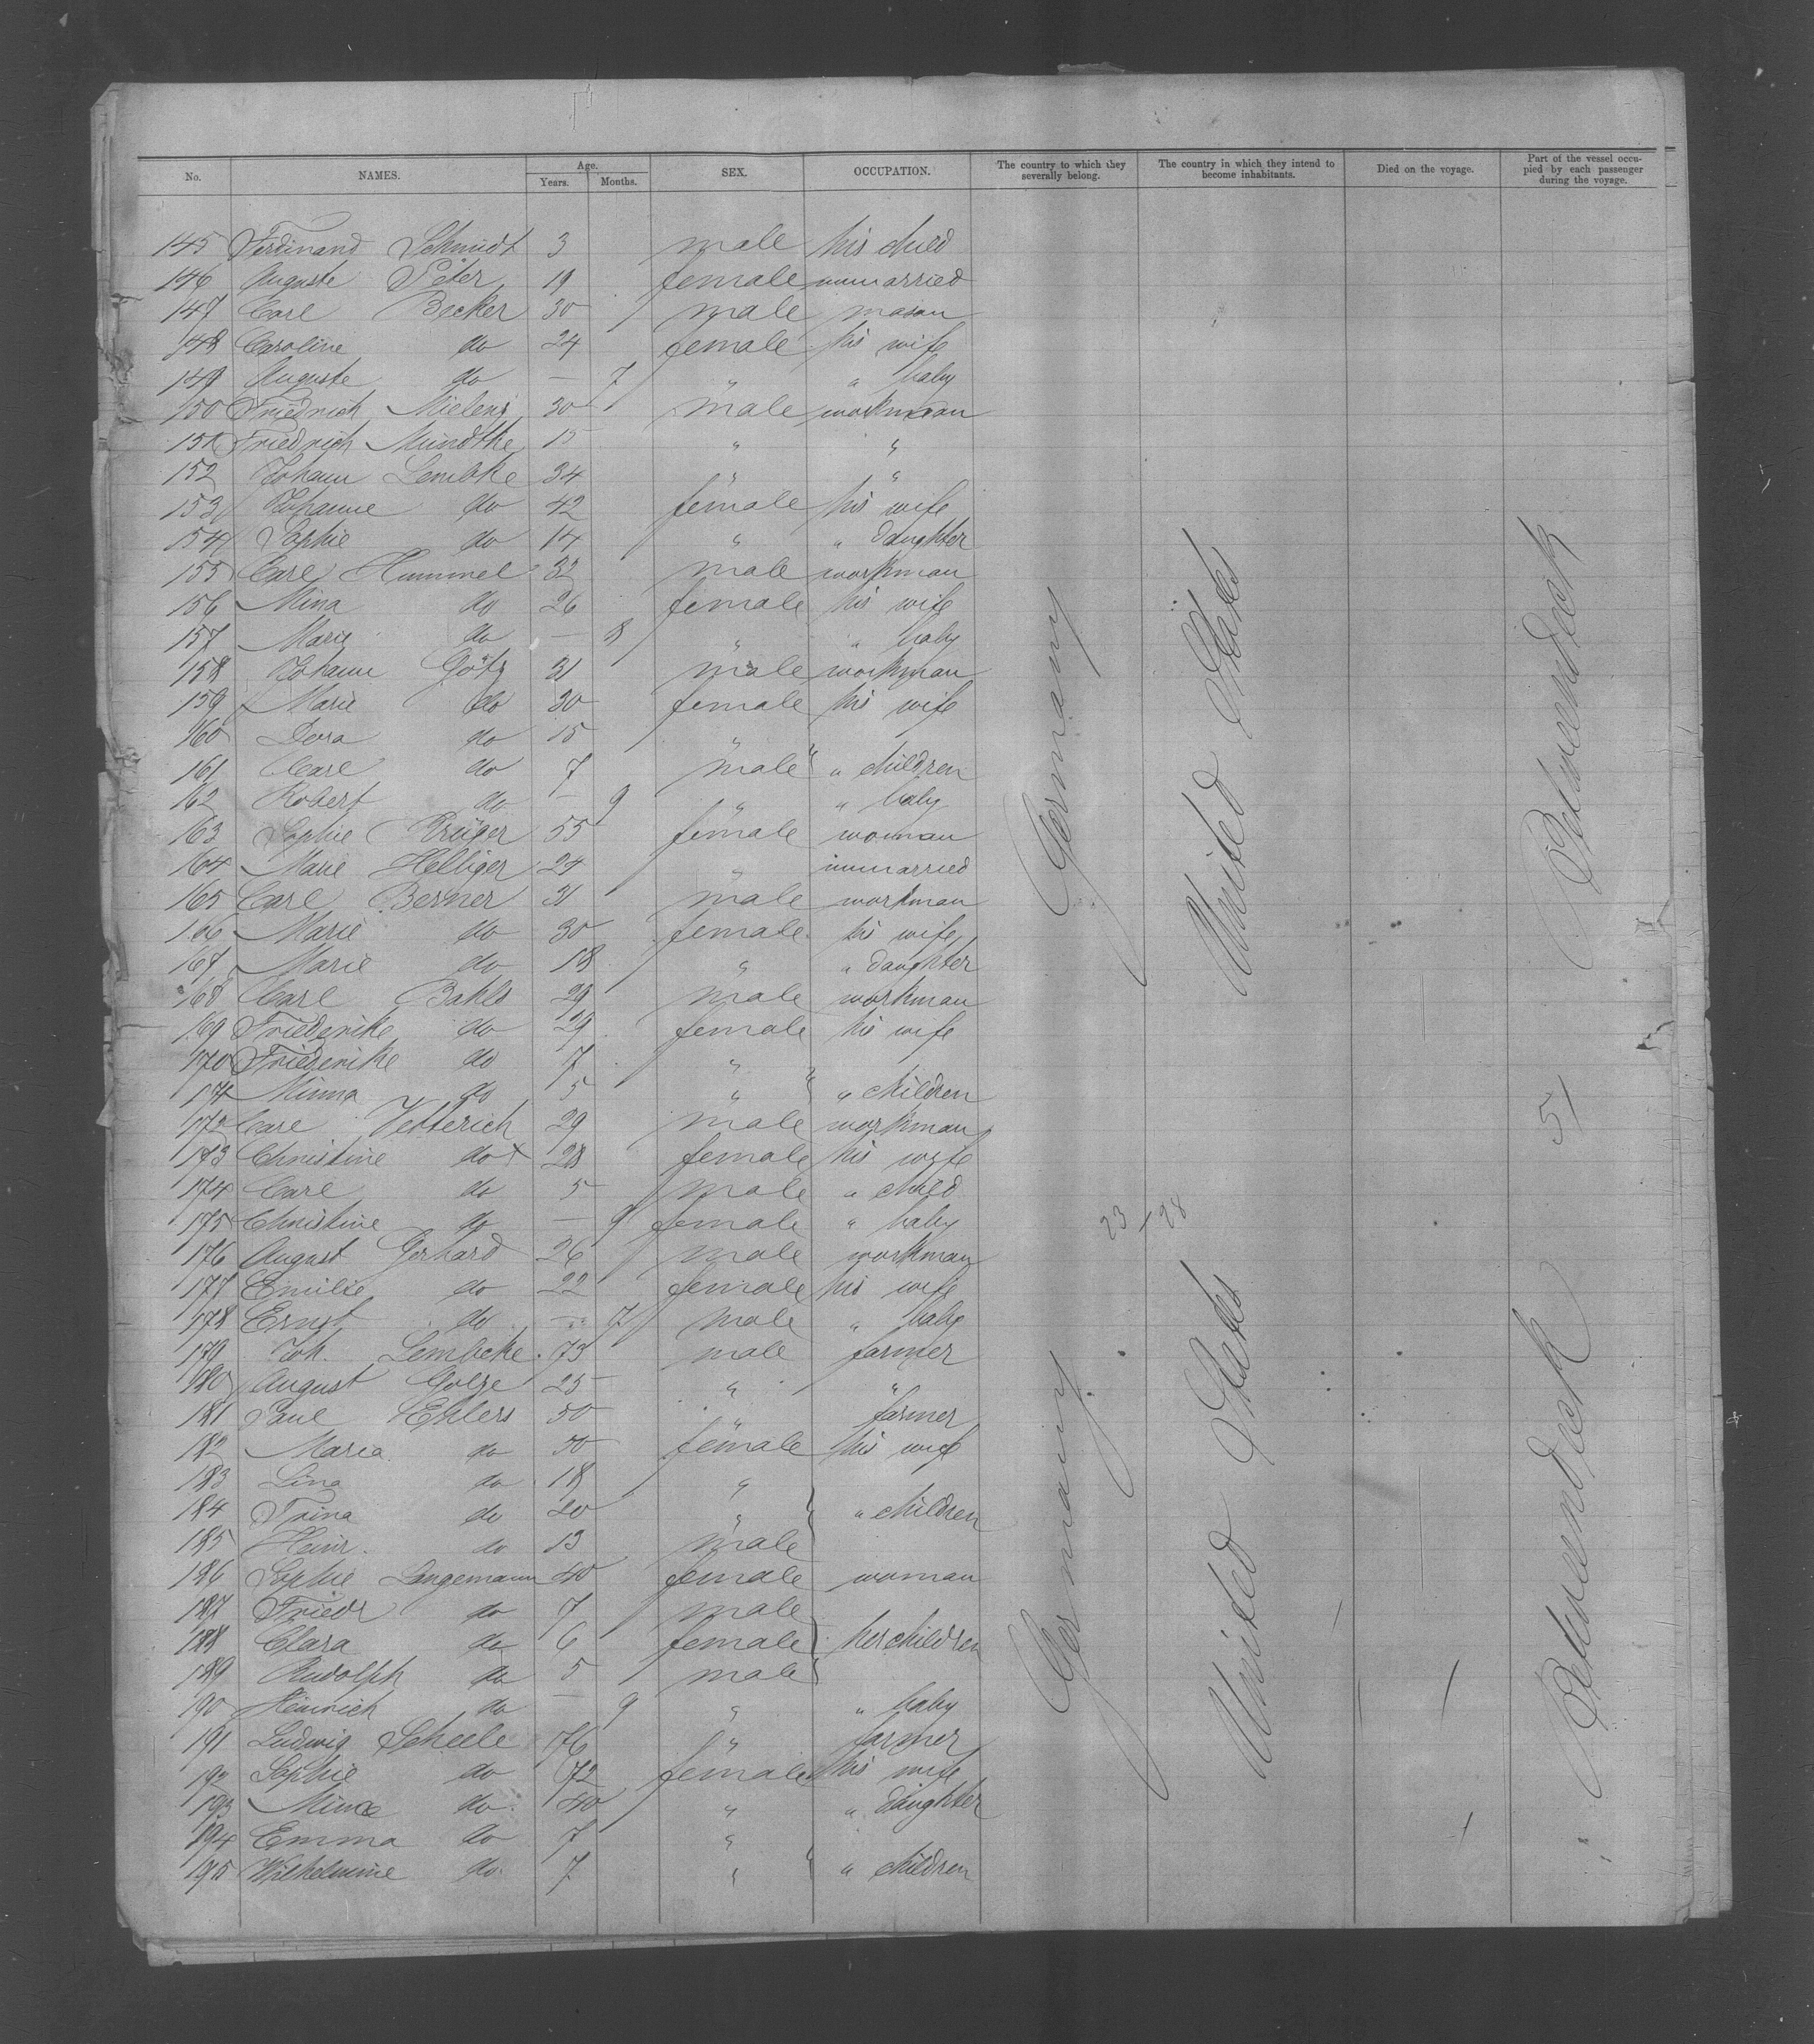 No. NAMES. Age. Years. Months. SEX. OCCUPATION. The country to which they severally belong. The country in which they intend to become inhabitants. Died on the voyage. Part of the vessel occupied by each passenger during the voyage.
145 Ferdinand Schmidt 3 male his child
146 Auguste Peter 19 female unmarried
147 Carl Becker 30 male mason
148 Caroline do 24 female his wife
149 Auguste do — 7 " " baby
150 Friedrich Mielenz 30 male workman
151 Friedrich Mundthe 15 " "
152 Johann Lembke 34 " "
153 Johanne do 42 female his wife
154 Sophie do 14 " " daughter
155 Carl Hummel 32 male workman
156 Mina do 26 female his wife
157 Marie do — 8 " " baby
158 Johann Götz 31 male workman
159 Marie do 30 female his wife
160 Dora do 15 "
161 Carl do 7 male " children
162 Robert do — 9 " " baby
163 Sophie Krüger 55 female woman
164 Marie Helliger 24 " unmarried
165 Carl Berner 31 male workman
166 Marie do 30 female his wife
167 Marie do 18 " " daughter
168 Carl Bahls 29 male workman
169 Friederike do 29 female his wife
170 Friederike do 7 "
171 Minna do 5 " " children
172 Carl Vetterich 29 male workman
173 Christine do 28 female his wife
174 Carl do 5 male " child
175 Christine do — 9 female " baby
176 August Gerhard 26 male workman
177 Emilie do 22 female his wife
178 Ernst do — 7 male " baby
179 Joh. Lembcke 73 male farmer
180 August Golze 25 " "
181 Paul Ehlers 50 farmer
182 Maria do 50 female his wife
183 Lina do 18 "
184 Trina do 20 " " children
185 Heinr. do 13 male
186 Sophie Langemann 40 female woman
187 Friedr do 7 male
188 Clara do 6 female her children
189 Rudolph do 5 male
190 Heinrich do — 9 " " baby
191 Ludwig Scheele 76 " farmer
192 Sophie do 72 female his wife
193 Mina do 40 " " daughter
194 Emma do 7 "
195 Wilhelmine do 7 " " children
Germany
United States
Betweendeck
51
23 – 28
Germany
United States
Betweendeck